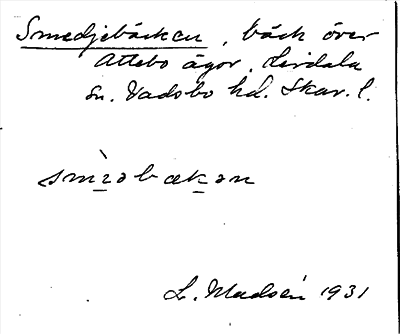 Smedjebäcken, bäck över
Attebo ägor. Lerdala
sn. Vadsbo hd. Skar. l.
smìəbækən
L. Madsén 1931